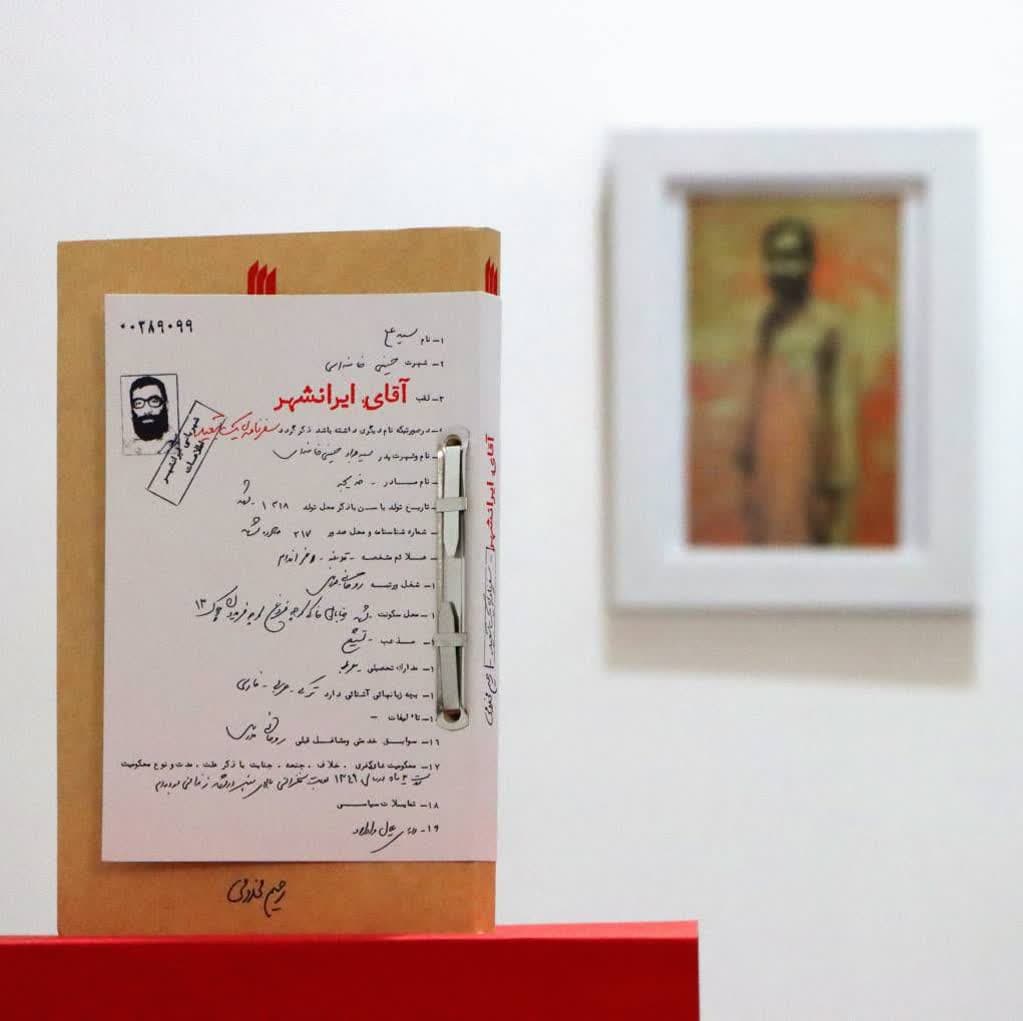 ۰۰۳۸۹۰۹۹
۱- نام سید علی
۲- شهرت حسینی خامنه‌ای
۳- لقب آقای ایرانشهر
در صورتیکه نام دیگری داشته باشد ذکر گردد سفرنامه‌ی یک تبعید
نام و شهرت پدر سید جواد حسینی خامنه‌ای
نام مادر - خدیجه
تاریخ تولد با سن با ذکر محل تولد ۱۳۱۸
شماره شناسنامه و محل صدور ۲۱۷
علائم مشخصه -
۱- شغل و رتبه روحانی
۱- محل سکونت
۱- مذهب - تشیع
۱- مدارک تحصیلی
۱- بچه زبانهائی آشنائی دارد ترکی - عربی - فارسی
۱- تالیفات -
۱۶- سوابق خدمتی و مشاغل قبلی روحانی
۱۷- محکومیت کیفری، خلاف، جنحه، جنایت با ذکر علت، مدت و نوع محکومیت
۱۸- تمایلات سیاسی
۱۹-
رحیم مخدومی
آقای ایرانشهر - سفرنامه‌ی یک تبعید - رحیم مخدومی